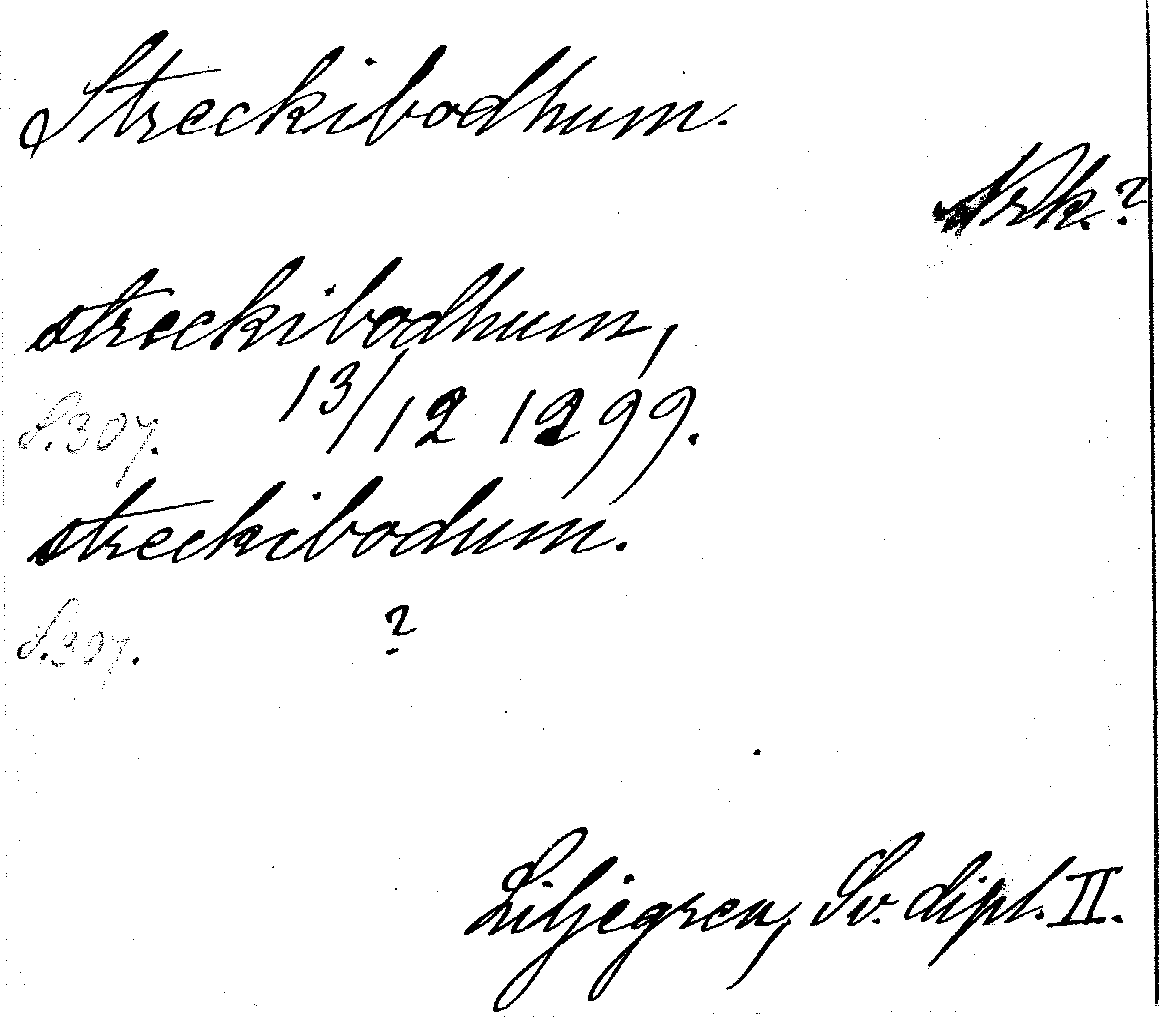 Streckibodhum.
Nrk.?
streckibodhum,
S.307. 13/12 1299.
streckibodum.
S.307. ?
Liljegren, Sv. dipl. II.